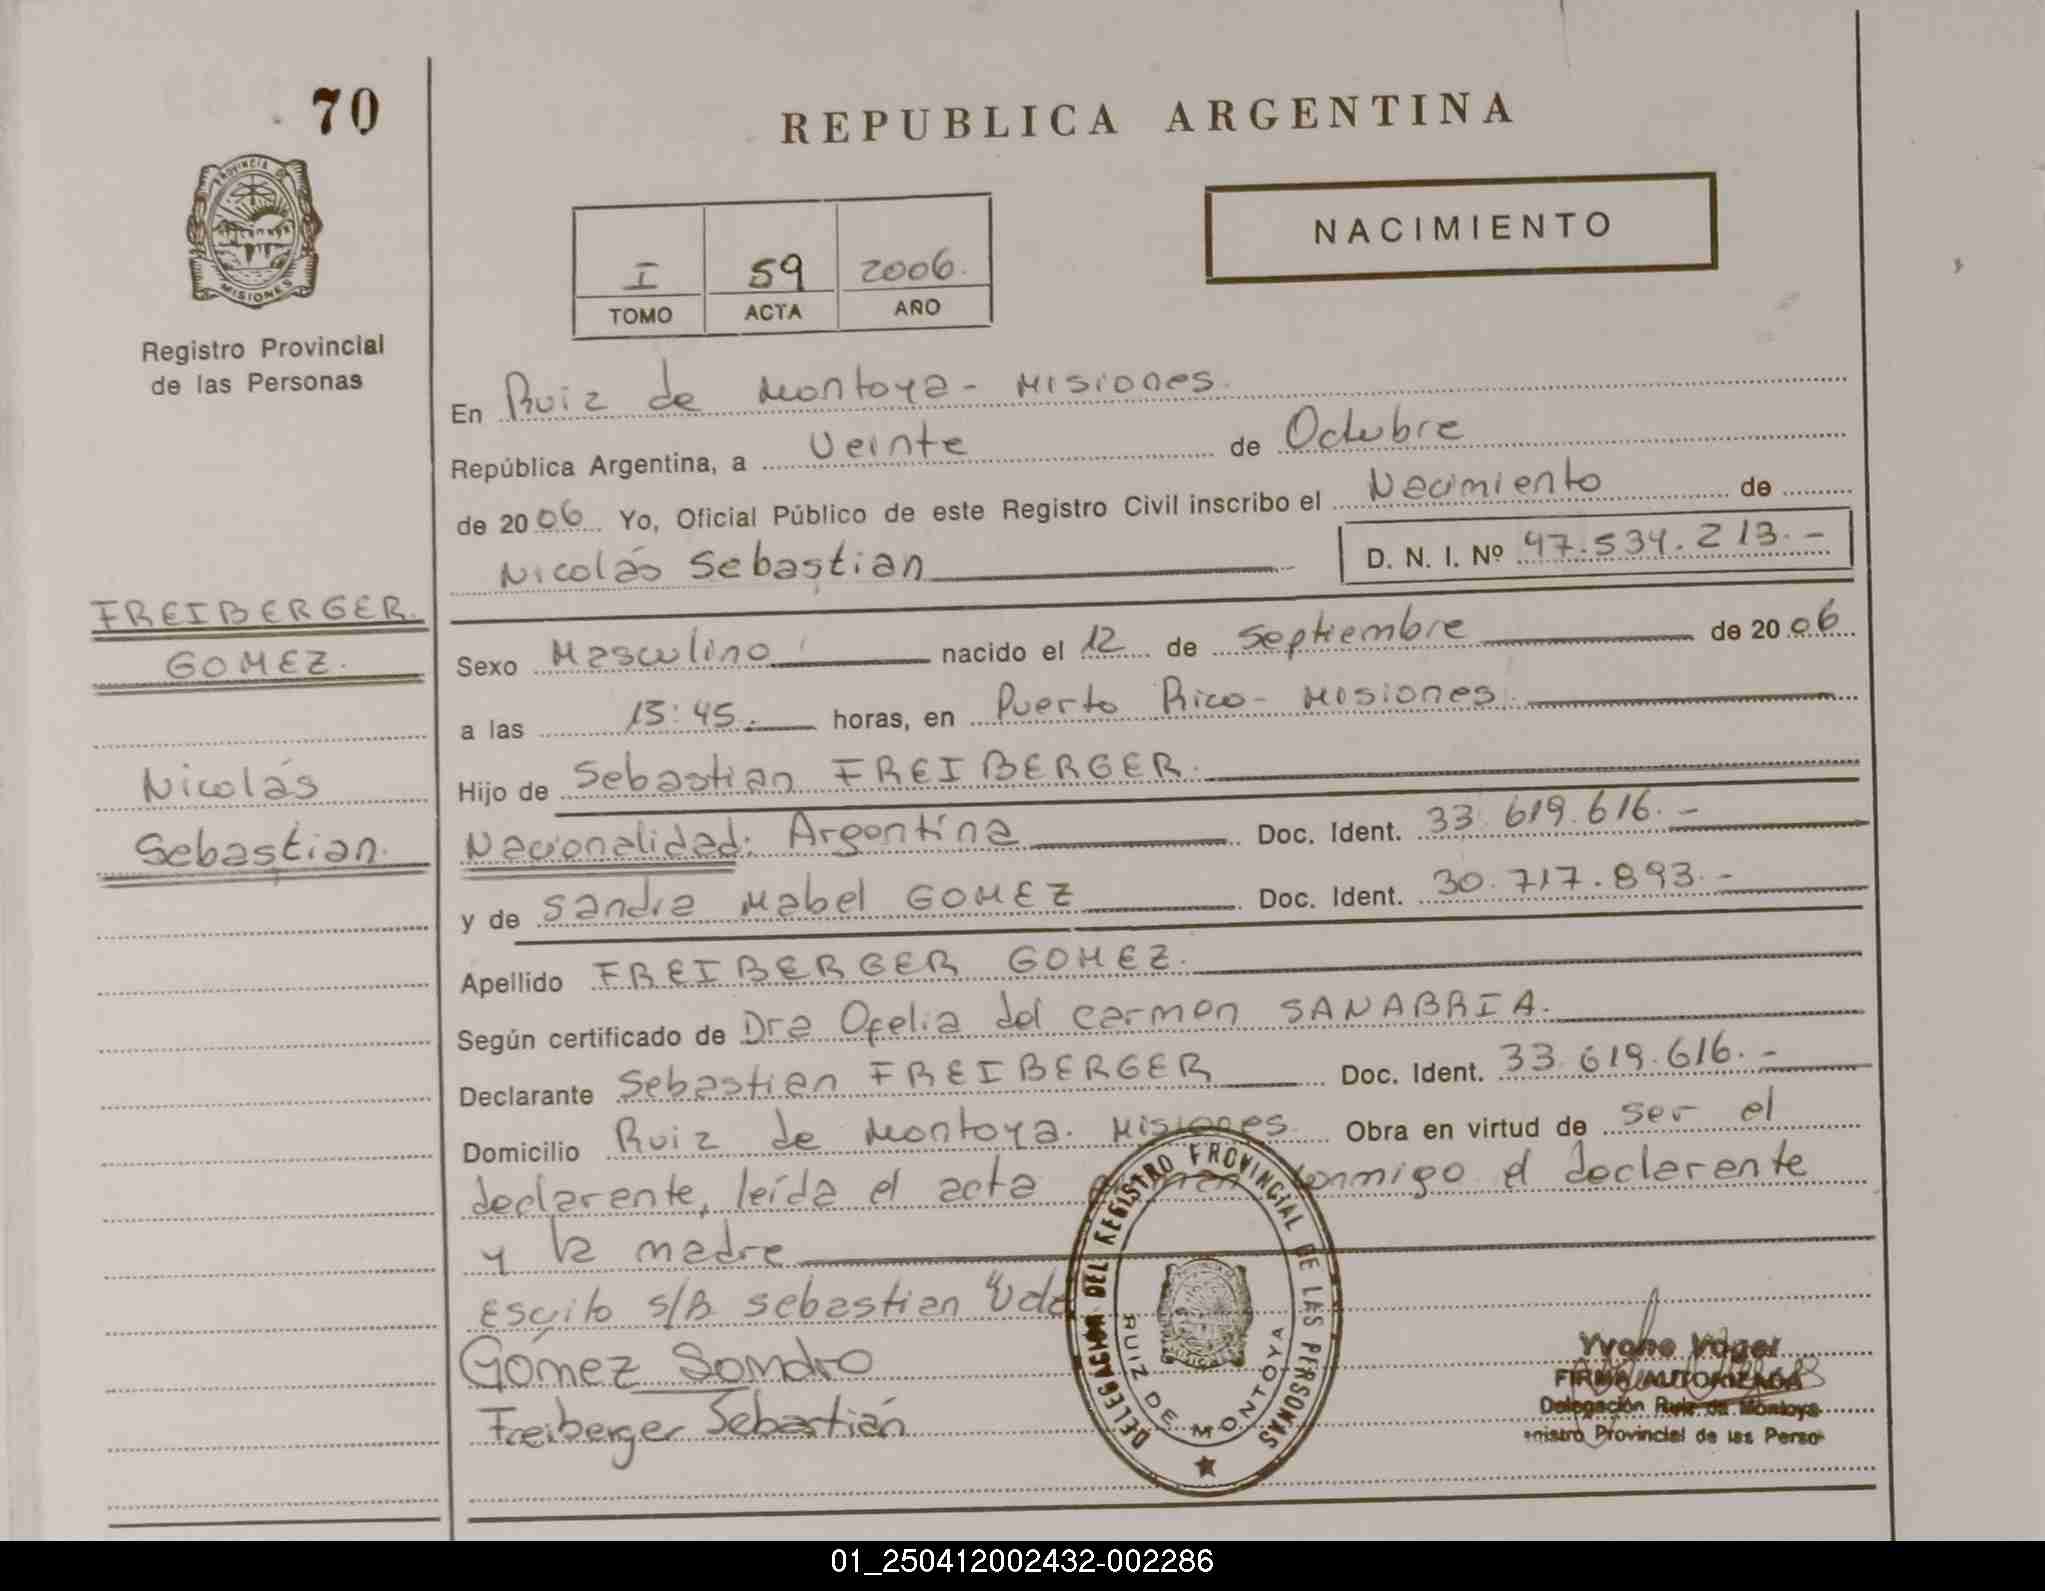 70
REPUBLICA ARGENTINA
PROVINCIA DE
MISIONES
NACIMIENTO
I 59 2006.
TOMO ACTA AÑO
Registro Provincial
de las Personas
En Ruiz de Montoya - Misiones.
República Argentina, a Veinte de Octubre
de 2006 Yo, Oficial Público de este Registro Civil inscribo el Nacimiento de
Nicolás Sebastian D. N. I. Nº 47.534.213.-
FREIBERGER.
GOMEZ.
Nicolás
Sebastian.
Sexo Masculino nacido el 12 de Septiembre de 2006
a las 13:45. horas, en Puerto Rico - Misiones.
Hijo de Sebastian FREIBERGER.
Nacionalidad: Argentina Doc. Ident. 33.619.616.-
y de Sandra Mabel GOMEZ Doc. Ident. 30.717.893.-
Apellido FREIBERGER GOMEZ.
Según certificado de Dra Ofelia del Carmen SANABRIA.
Declarante Sebastian FREIBERGER Doc. Ident. 33.619.616.-
Domicilio Ruiz de Montoya. Misiones Obra en virtud de ser el
declarante, leída el acta conmigo el declarante
y la madre
Escrito s/R Sebastian
Gómez Sandra
Freiberger Sebastián
DELEGACION DEL REGISTRO PROVINCIAL DE LAS PERSONAS
RUIZ DE MONTOYA
Yvone
FIRMA AUTORIZADA
Delegación Ruiz de Montoya
Provincial de las Perso
01_250412002432-002286